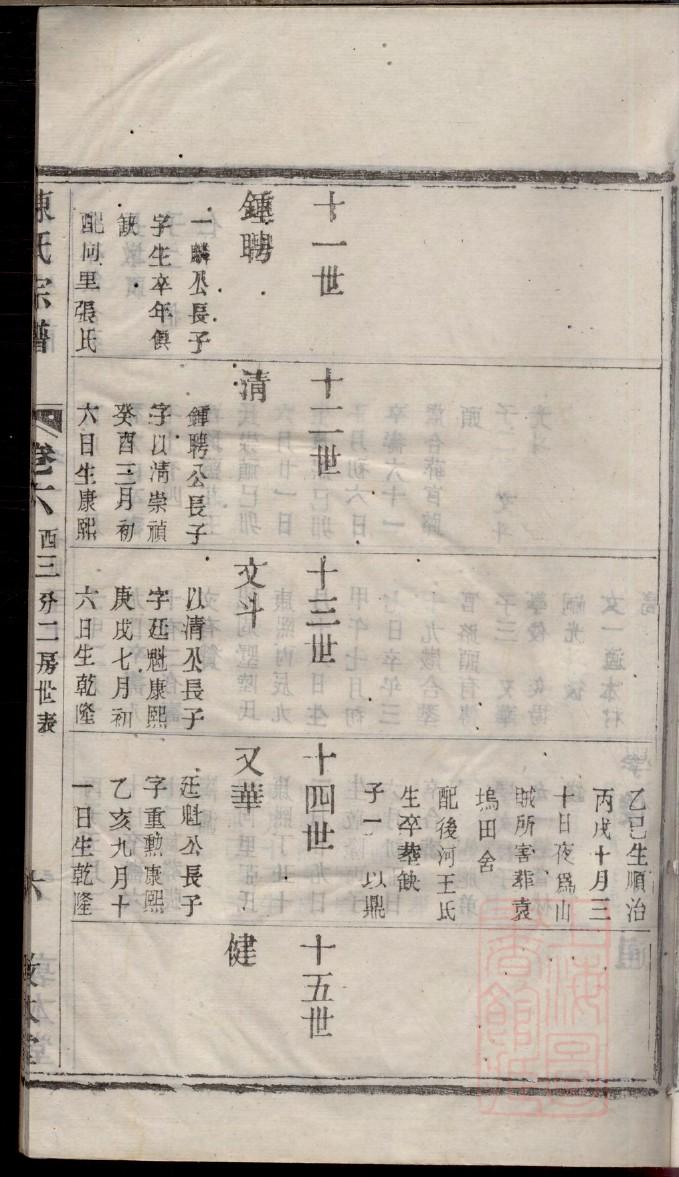 乙巳生順治
丙戌十月三
十日夜爲山
賊所害葬袁
塢田舍
配後河王氏
生卒葬缺
子一 以鼎
十一世
鍾聘
一麟公長子
字生卒年俱
缺
配同里張氏
十二世
清
鍾聘公長子
字以清崇禎
癸酉三月初
六日生康熙
十三世
文斗
以清公長子
字廷魁康熙
庚戌七月初
六日生乾隆
十四世
又華
廷魁公長子
字重勲康熙
乙亥九月十
一日生乾隆
十五世
健
陳氏宗譜
卷六 西三分二房世表
六